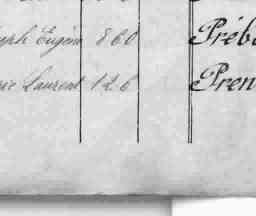 ph Eugène 860 Préb
ie Laurent 126 Pren